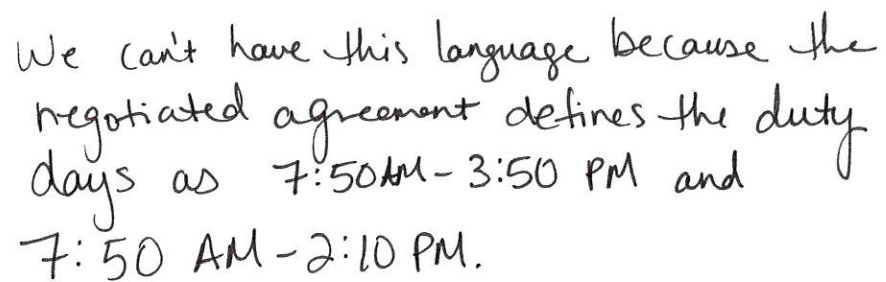 We can't have this language because the
negotiated agreement defines the duty
days as 7:50AM - 3:50 PM and
7:50 AM - 2:10 PM.